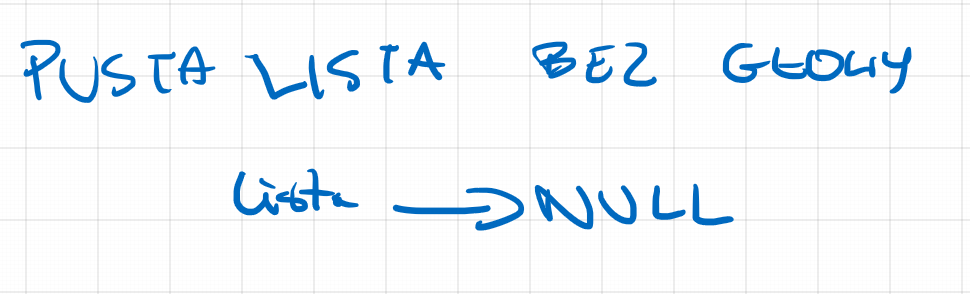 PUSTA LISTA BEZ GŁOWY
lista → NULL